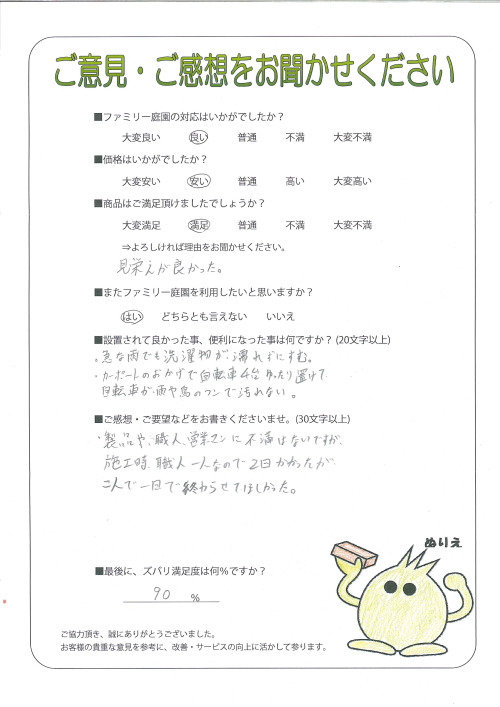 ご意見・ご感想をお聞かせください
■ファミリー庭園の対応はいかがでしたか？
大変良い 良い 普通 不満 大変不満
■価格はいかがでしたか？
大変安い 安い 普通 高い 大変高い
■商品はご満足頂けましたでしょうか？
大変満足 満足 普通 不満 大変不満
⇒よろしければ理由をお聞かせください。
見栄えが良かった。
■またファミリー庭園を利用したいと思いますか？
はい どちらとも言えない いいえ
■設置されて良かった事、便利になった事は何ですか？(20文字以上)
・急な雨でも洗濯物が濡れずにすむ。
・カーポートのおかげで自転車4台ゆったり置けて
自転車が雨や鳥のフンで汚れない。
■ご感想・ご要望などをお書きくださいませ。(30文字以上)
・製品や、職人、営業マンに不満はないですが、
施工時、職人一人なので2日かかったが
二人で一日で終わらせてほしかった。
ぬりえ
■最後に、ズバリ満足度は何％ですか？
90 ％
ご協力頂き、誠にありがとうございました。
お客様の貴重な意見を参考に、改善・サービスの向上に活かして参ります。